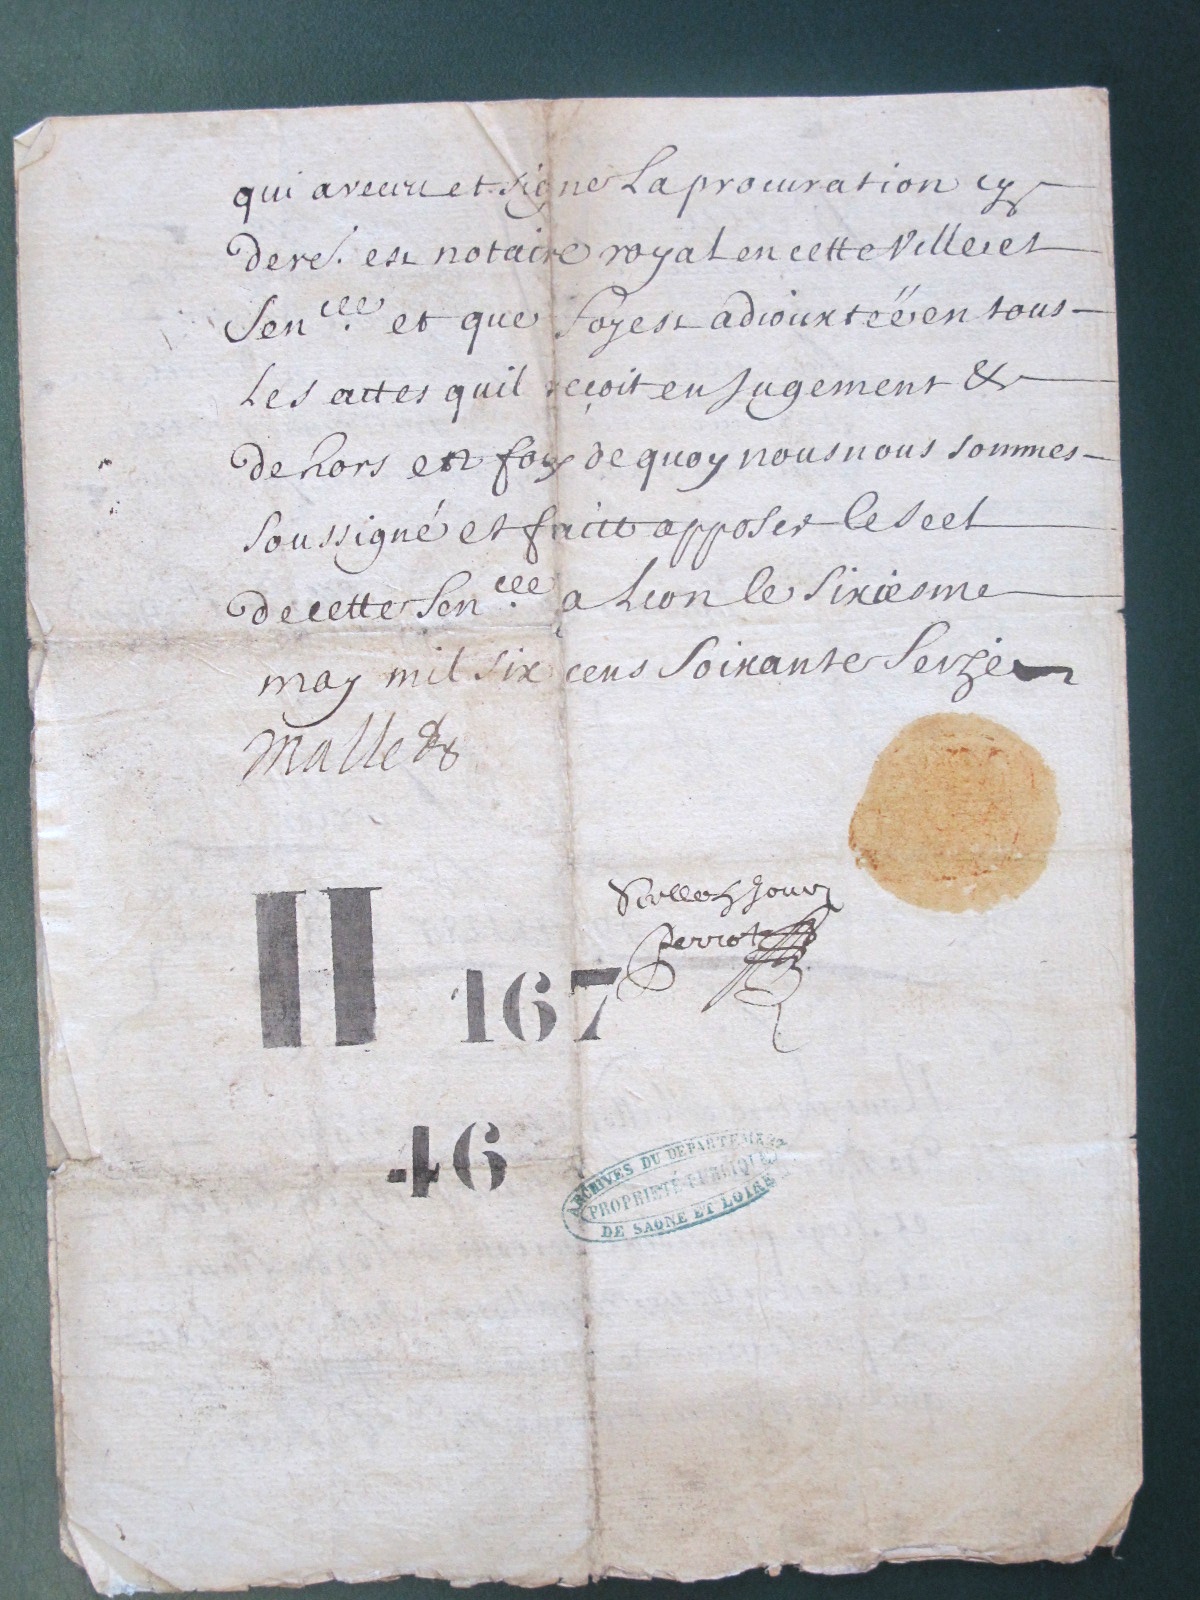 qui a receu et signe La procuration cy
der.e est notaire royal en cette Ville et
Sen.cée et que foy est adiouxtéé en tous
Les actes quil reçoit en Jugement &
dehors en foy de quoy nous nous sommes
soussigné et faict apposer le seel
de cette Sen.cée a Lion le sixiesme
may mil six cens soixante seize
Mallet
Jour
Perrot
H 167
46
ARCHIVES DU DEPARTEMENT
PROPRIÉTÉ PUBLIQUE
DE SAONE ET LOIRE